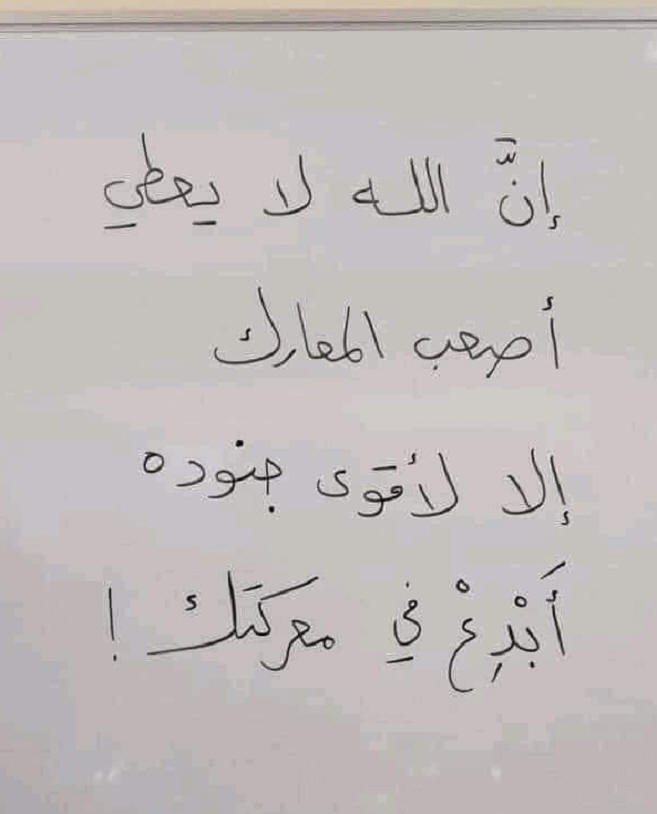 إنَّ الله لا يعطي
أصعب المعارك
إلا لأقوى جنوده
أَبْدِعْ في معركتك !